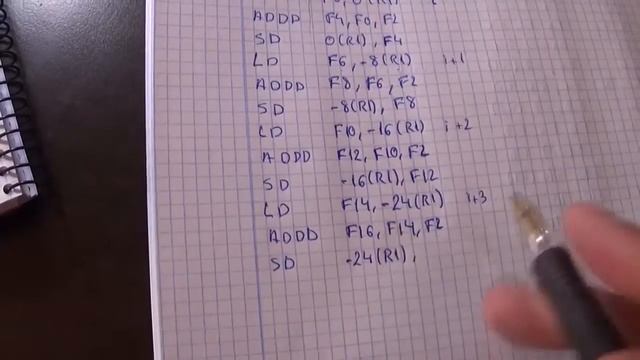 0(R1)
ADDD F4, F0, F2
SD 0(R1), F4
LD F6, -8(R1) i+1
ADDD F8, F6, F2
SD -8(R1), F8
LD F10, -16(R1) i+2
ADDD F12, F10, F2
SD -16(R1), F12
LD F14, -24(R1) i+3
ADDD F16, F14, F2
SD -24(R1),